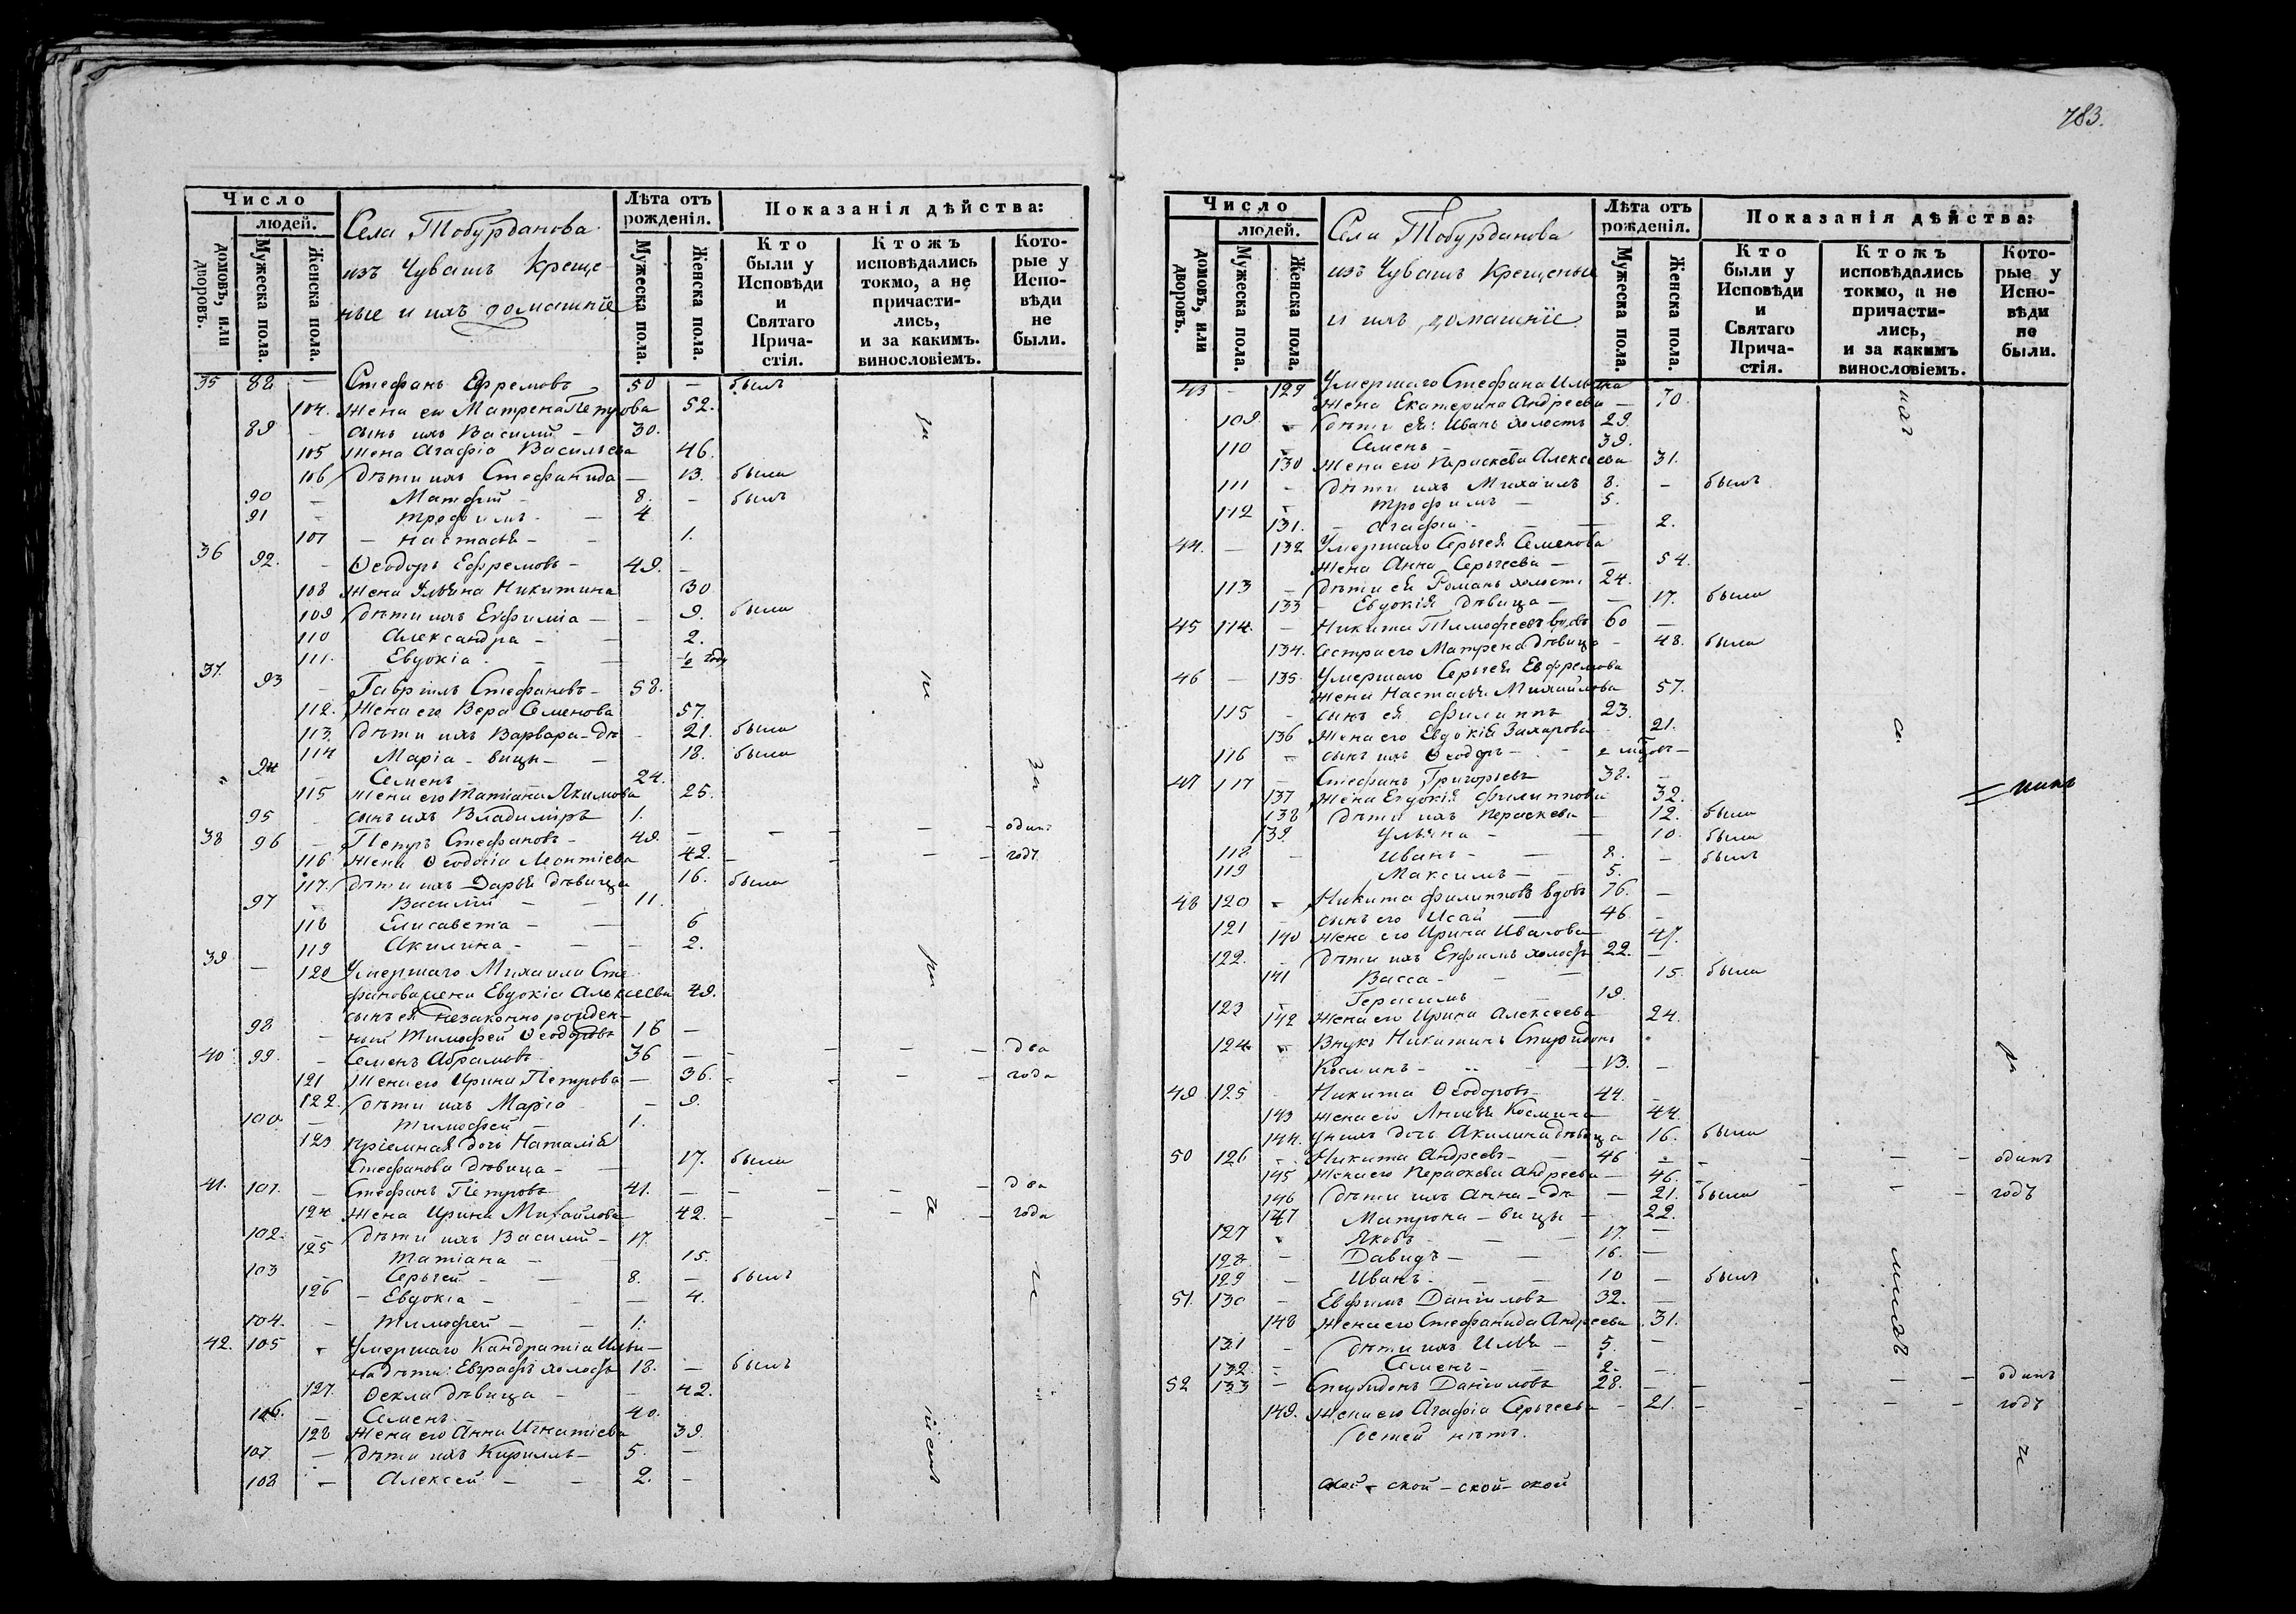 783.
Число
людей.
домовъ, или дворовъ.
Мужеска пола.
Женска пола.
Села Тобурданова
изъ Чувашъ Креще-
ные и ихъ домашніе
Лѣта отъ рожденія.
Мужеска пола.
Женска пола.
Показанія дѣйства:
Кто были у Исповѣди и Святаго Прича-стія.
Ктожъ исповѣдались токмо, а не причасти-лись, и за какимъ. винословіемъ.
Кото-рые у Испо-вѣди не были.
35 88 — Стефанъ Ефремовъ 50 — былъ
104. Жена его Матрена Петрова 52.
89 — сынъ ихъ Василий — 30.
105 Жена Агафіа Васильева 46.
106 Дѣти ихъ Стефанида — 13. была
90 — Матфій — 8. — былъ
91 — Трофимъ — 4
107 — Настасья — 1.
36 92. — Ѳеодоръ Ефремовъ — 49. —
108 Жена Ульяна Никитина 30
109 Дѣти ихъ Евфиміа — 9. была
110 Александра — 2.
111. Евдокіа — ½ году
37. 93 — Гаврiилъ Стефановъ — 58.
112. Жена его Вера Семенова 57.
113. Дѣти ихъ Варвара — дѣ — 21. была
114 Маріа — вицы — 18. была
94 — Семенъ 24.
115 Жена его Татіана Якимова 25.
95 сынъ ихъ Владиміръ 1.
38 96 — Петръ Стефановъ — 49. — одинъ
116 Жена Ѳеодосіа Леонтіева 42. — годъ
117. Дѣти ихъ Дарья дѣвица 16. была
97 Василій — 11.
118 Елисавета — 6
119 Акилина — 2.
39 — 120 Умершаго Михаила Сте
фанова жена Евдокіа Алексеева 49.
сынъ ея незаконно рожден-
98 — ный Тимофей Ѳеодоровъ 16 —
40 99. — Семенъ Абрамовъ 36 — два
121 Жена его Ирина Петрова — 36. — года
122. Дѣти ихъ Маріа — 9.
100. — Тимофей — 1.
123 Пріемная дочь Наталія
Стефанова дѣвица — 17. была
41. 101. — Стефанъ Петровъ 41. — два
124 Жена Ирина Михайлова 42. — года
102. — Дѣти ихъ Василій — 17.
125 Татіана — 15.
103 — Сергей — 8. — былъ
126 — Евдокіа — 4.
104. — Тимофей — 1.
42. 105 Умершаго Кандратіа Ильи-
на дѣти: Евграфъ холостъ 18. — былъ
127. Ѳекла дѣвица — 42.
106. — Семенъ — 40.
128 Жена его Анна Игнатіева 39.
107 — Дѣти ихъ Кириллъ — 5. —
108 — Алексей — 2. —
Число
людей.
домовъ, или дворовъ.
Мужеска пола.
Женска пола.
Села Тобурданова
изъ Чувашъ Крещеные
и ихъ домашніе.
Лѣта отъ рожденія.
Мужеска пола.
Женска пола.
Показанія дѣйства:
Кто были у Исповѣди и Святаго Прича-стія.
Ктожъ исповѣдались токмо, а не причасти-лись, и за какимъ винословіемъ.
Кото-рые у Испо-вѣди не были.
43 — 129 Умершаго Стефана Ильина
Жена Екатерина Андреева — 70.
109. Дѣти ея: Иванъ холостъ 29.
110 Семенъ 39.
130 Жена его Параскева Алексеева 31.
111 — Дѣти ихъ Михаилъ 8. — былъ
112 Трофимъ — 5.
131. — Агафіа — 2.
44. — 132 Умершаго Сергея Семенова
Жена Анна Сергеева — 54.
113 — Дѣти ея Романъ холостъ 24.
133 — Евдокія дѣвица — 17. была
45 114. — Никита Тимофеевъ вдовъ 60 —
134. Сестра его Матрена дѣвица — 48. была
46 — 135 Умершаго Сергея Ефремова
Жена Настасья Михайлова 57.
115 — сынъ ея Филиппъ 23.
136 Жена его Евдокія Захарова 21.
116 — сынъ ихъ Ѳеодоръ —
47 117 — Стефанъ Григорьевъ 38. —
137 Жена Евдокія Филиппова 32.
138 Дѣти ихъ Параскева — 12. была
139. Ульяна — 10. была
118 — Иванъ — 8. — былъ
119 Максимъ — 5.
48 120 Никита Филипповъ вдовъ 76. —
121 — сынъ его Исай — 46. —
140 Жена его Ирина Иванова 47.
122. — Дѣти ихъ Евфимъ холостъ 22. —
141 Васса — 15. была
123 — Герасимъ — 19.
142 Жена его Ирина Алексеева 24.
124 Внукъ Никитинъ Спиридонъ
Косминъ — 13. —
49 125 Никита Ѳеодоровъ 44.
143 Жена его Косьмина 44.
144. у нихъ дочь Акилина дѣвица 16. была
50 126 — Никита Андреевъ — 46 — одинъ
145 Жена его Параскева Андреева — 46. —
146 Дѣти ихъ Анна — дѣ — 21. была — годъ
147 Матрона — вицы — 22.
127 Яковъ — 17. —
128 — Давидъ — 16. —
129 — Иванъ — 10 — былъ
51. 130 — Евфимъ Даниловъ 32. —
148 Жена его Стефанида Андреева 31.
131 — Дѣти ихъ Илья — 5. —
132 — Семенъ — 2. —
52 133 — Спиридонъ Даниловъ 28. — одинъ
149. Жена его Агафіа Сергеева — 21. — годъ
Детей нѣтъ.
ской — ской — ской — ской